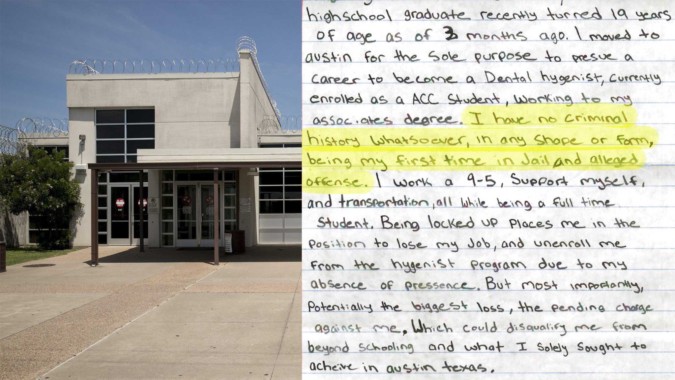 highschool graduate recently turned 19 years
of age as of 3 months ago. I moved to
austin for the sole purpose to presue a
career to become a Dental hygenist, currently
enrolled as a ACC student, working to my
associates degree. I have no criminal
history whatsoever, in any shape or form,
being my first time in Jail and alleged
offense. I work a 9-5, support myself,
and transportation, all while being a full time
student. Being locked up places me in the
position to lose my Job, and unenroll me
from the hygenist program due to my
absence of pressence. But most importantly,
Potentially the biggest loss, the pending charge
against me. Which could disqualify me from
beyond schooling and what I solely sought to
acheive in austin texas.